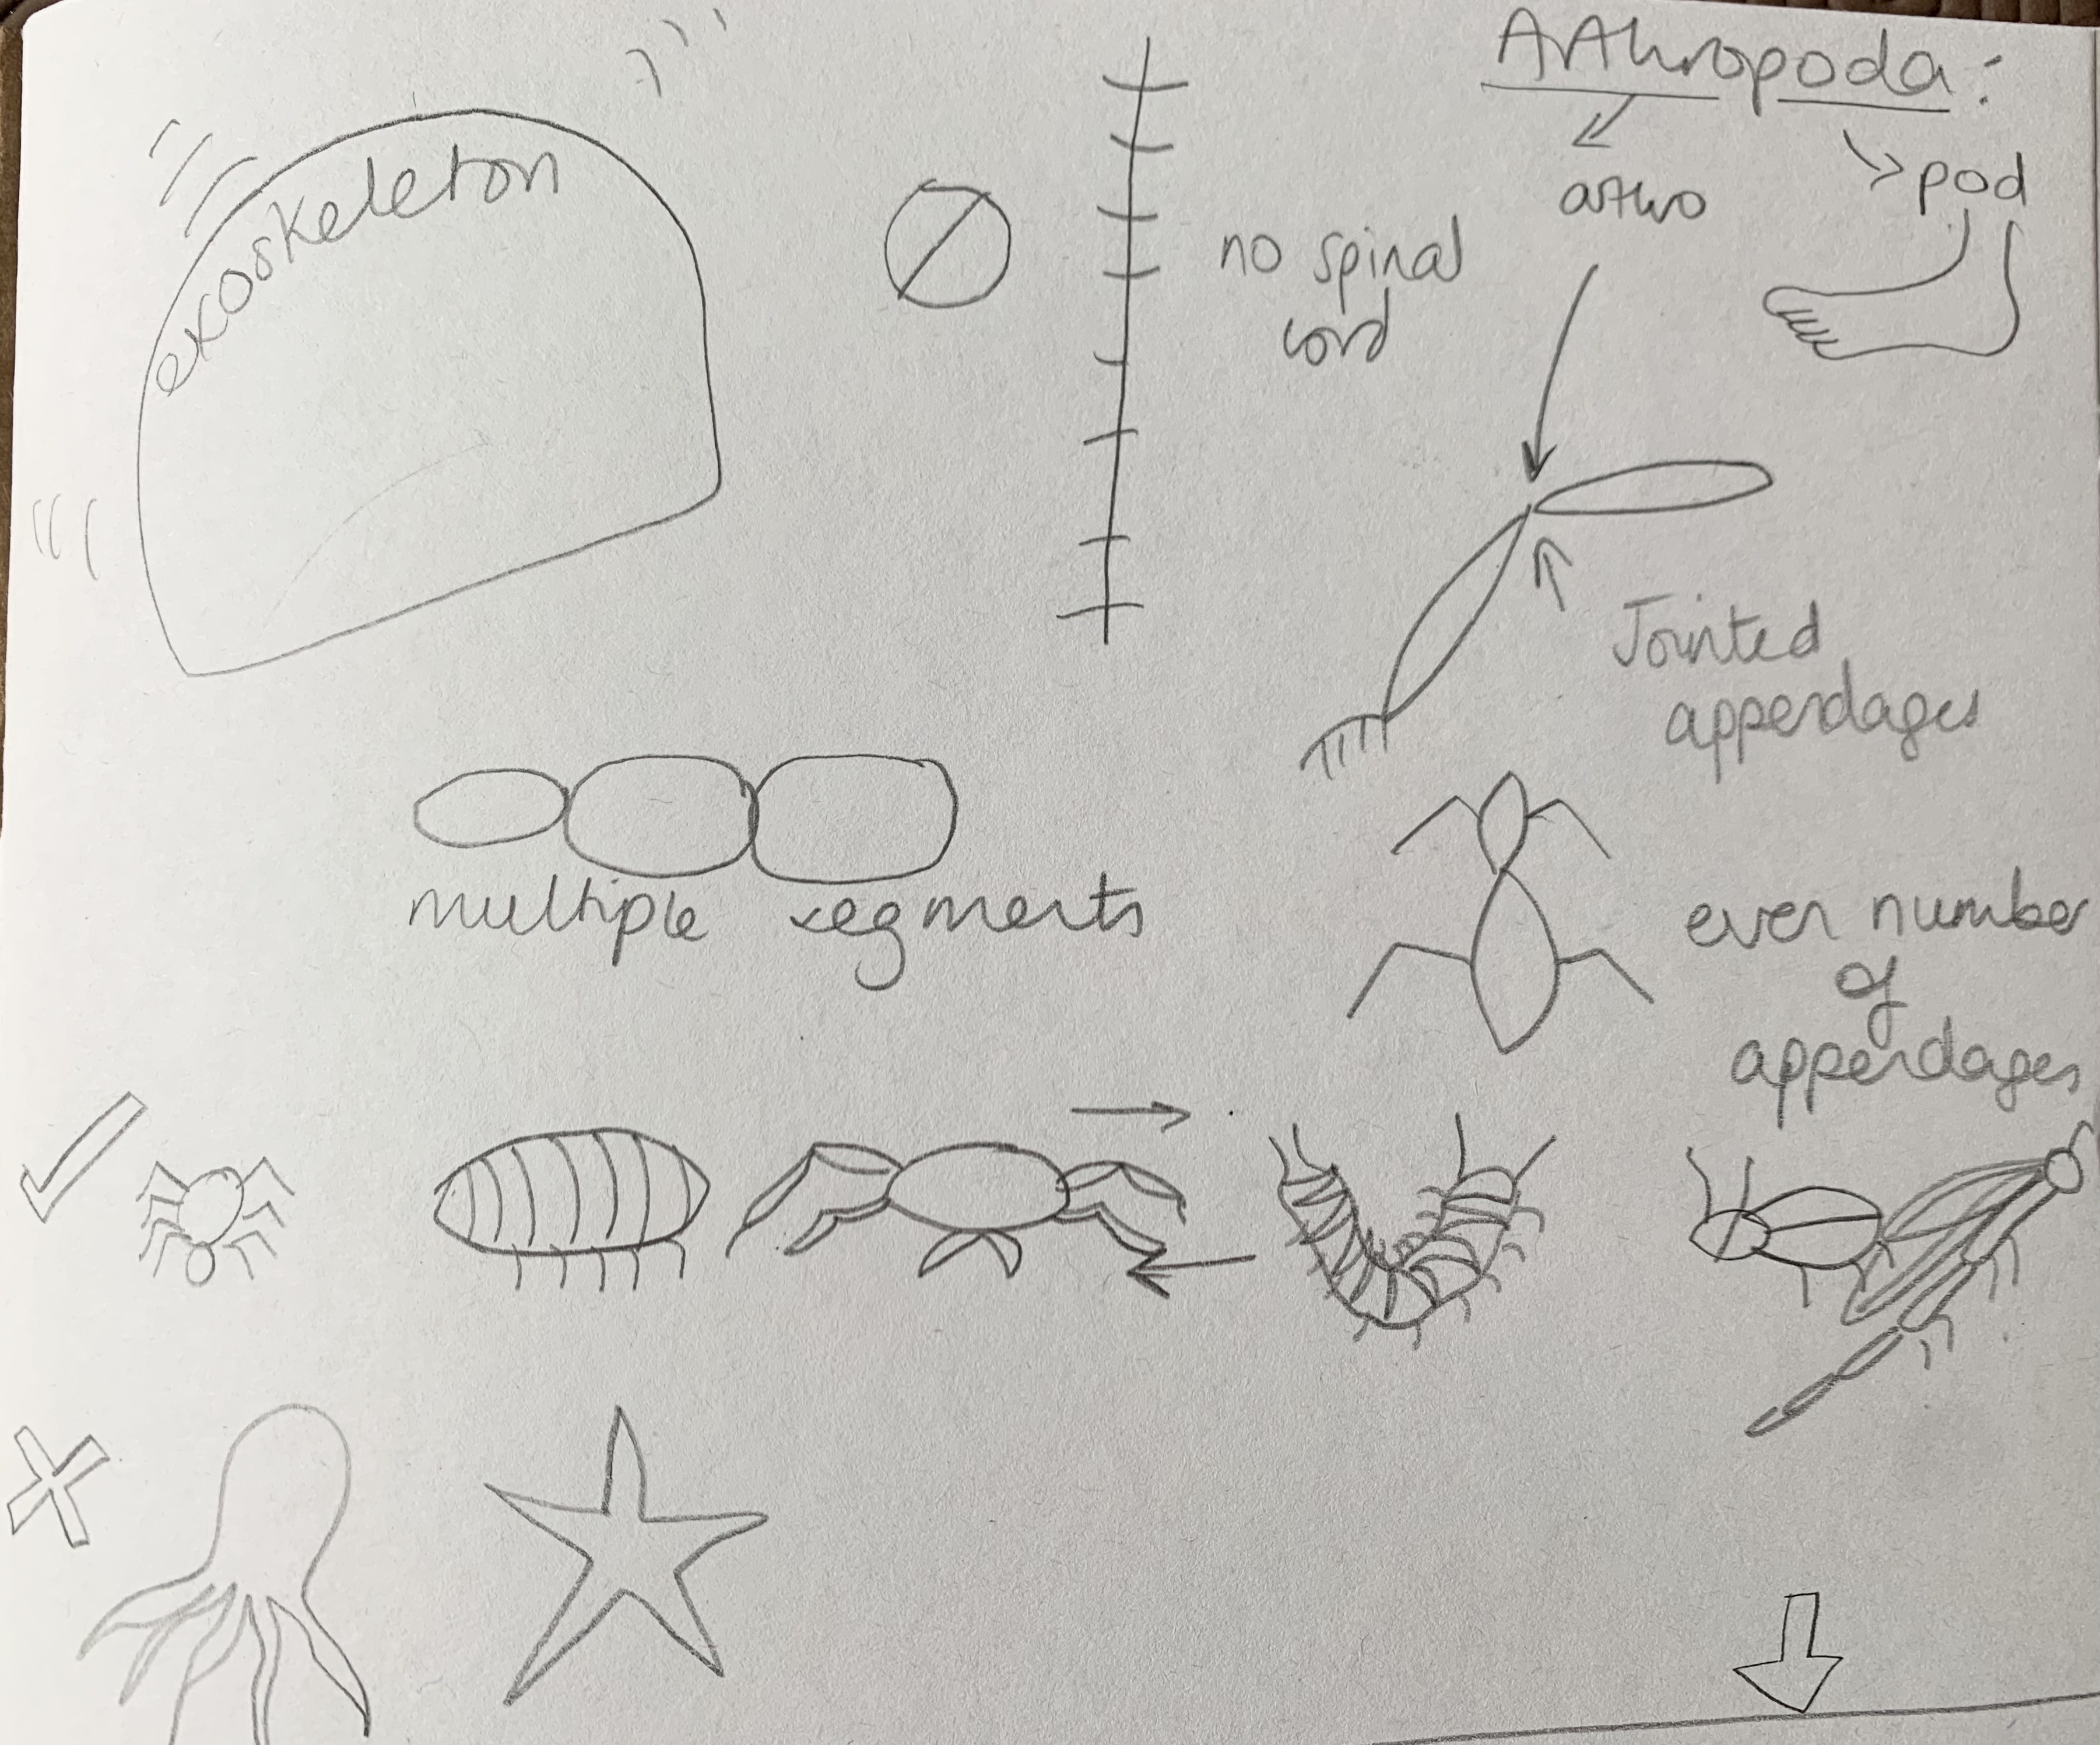 Arthropoda:
arthro
pod
exoskeleton
no spinal
cord
Jointed
appendages
multiple segments
even number
of
appendages